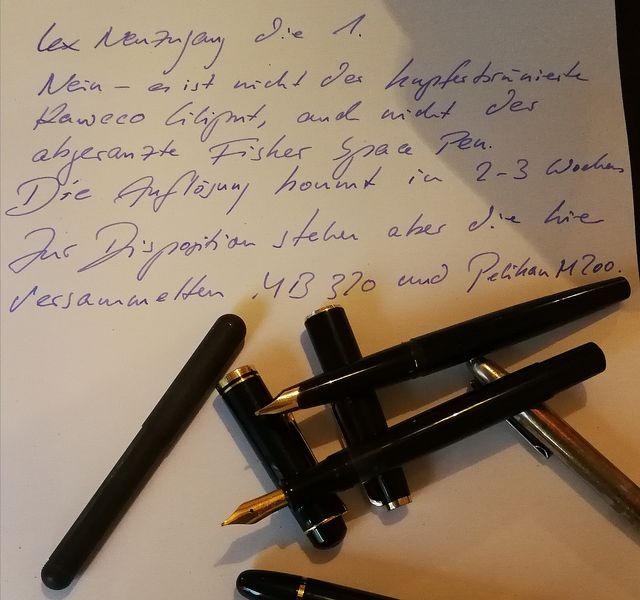 Lex Neuzugang die 1.
Nein – es ist nicht der kupferbrünierte
Kaweco Liliput, auch nicht der
abgeranzte Fisher Space Pen.
Die Auflösung kommt in 2-3 Wochen
Zur Disposition stehen aber die hier
versammelten MB 320 und Pelikan M200.